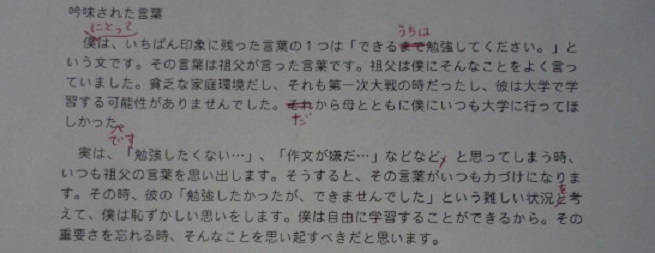 吟味された言葉
にとって
うちは
僕は、いちばん印象に残った言葉の1つは「できるまで勉強してください。」と
いう文です。その言葉は祖父が言った言葉です。祖父は僕にそんなことをよく言っ
ていました。貧乏な家庭環境だし、それも第一次大戦の時だったし、彼は大学で学
習する可能性がありませんでした。それから母とともに僕にいつも大学に行ってほ
だ
しかった。
です
実は、「勉強したくない…」、「作文が嫌だ…」などなど、と思ってしまう時、
いつも祖父の言葉を思い出します。そうすると、その言葉がいつも力づけになりま
す。その時、彼の「勉強したかったが、できませんでした」という難しい状況と考
を
えて、僕は恥ずかしい思いをします。僕は自由に学習することができるから。その
重要さを忘れる時、そんなことを思い起すべきだと思います。